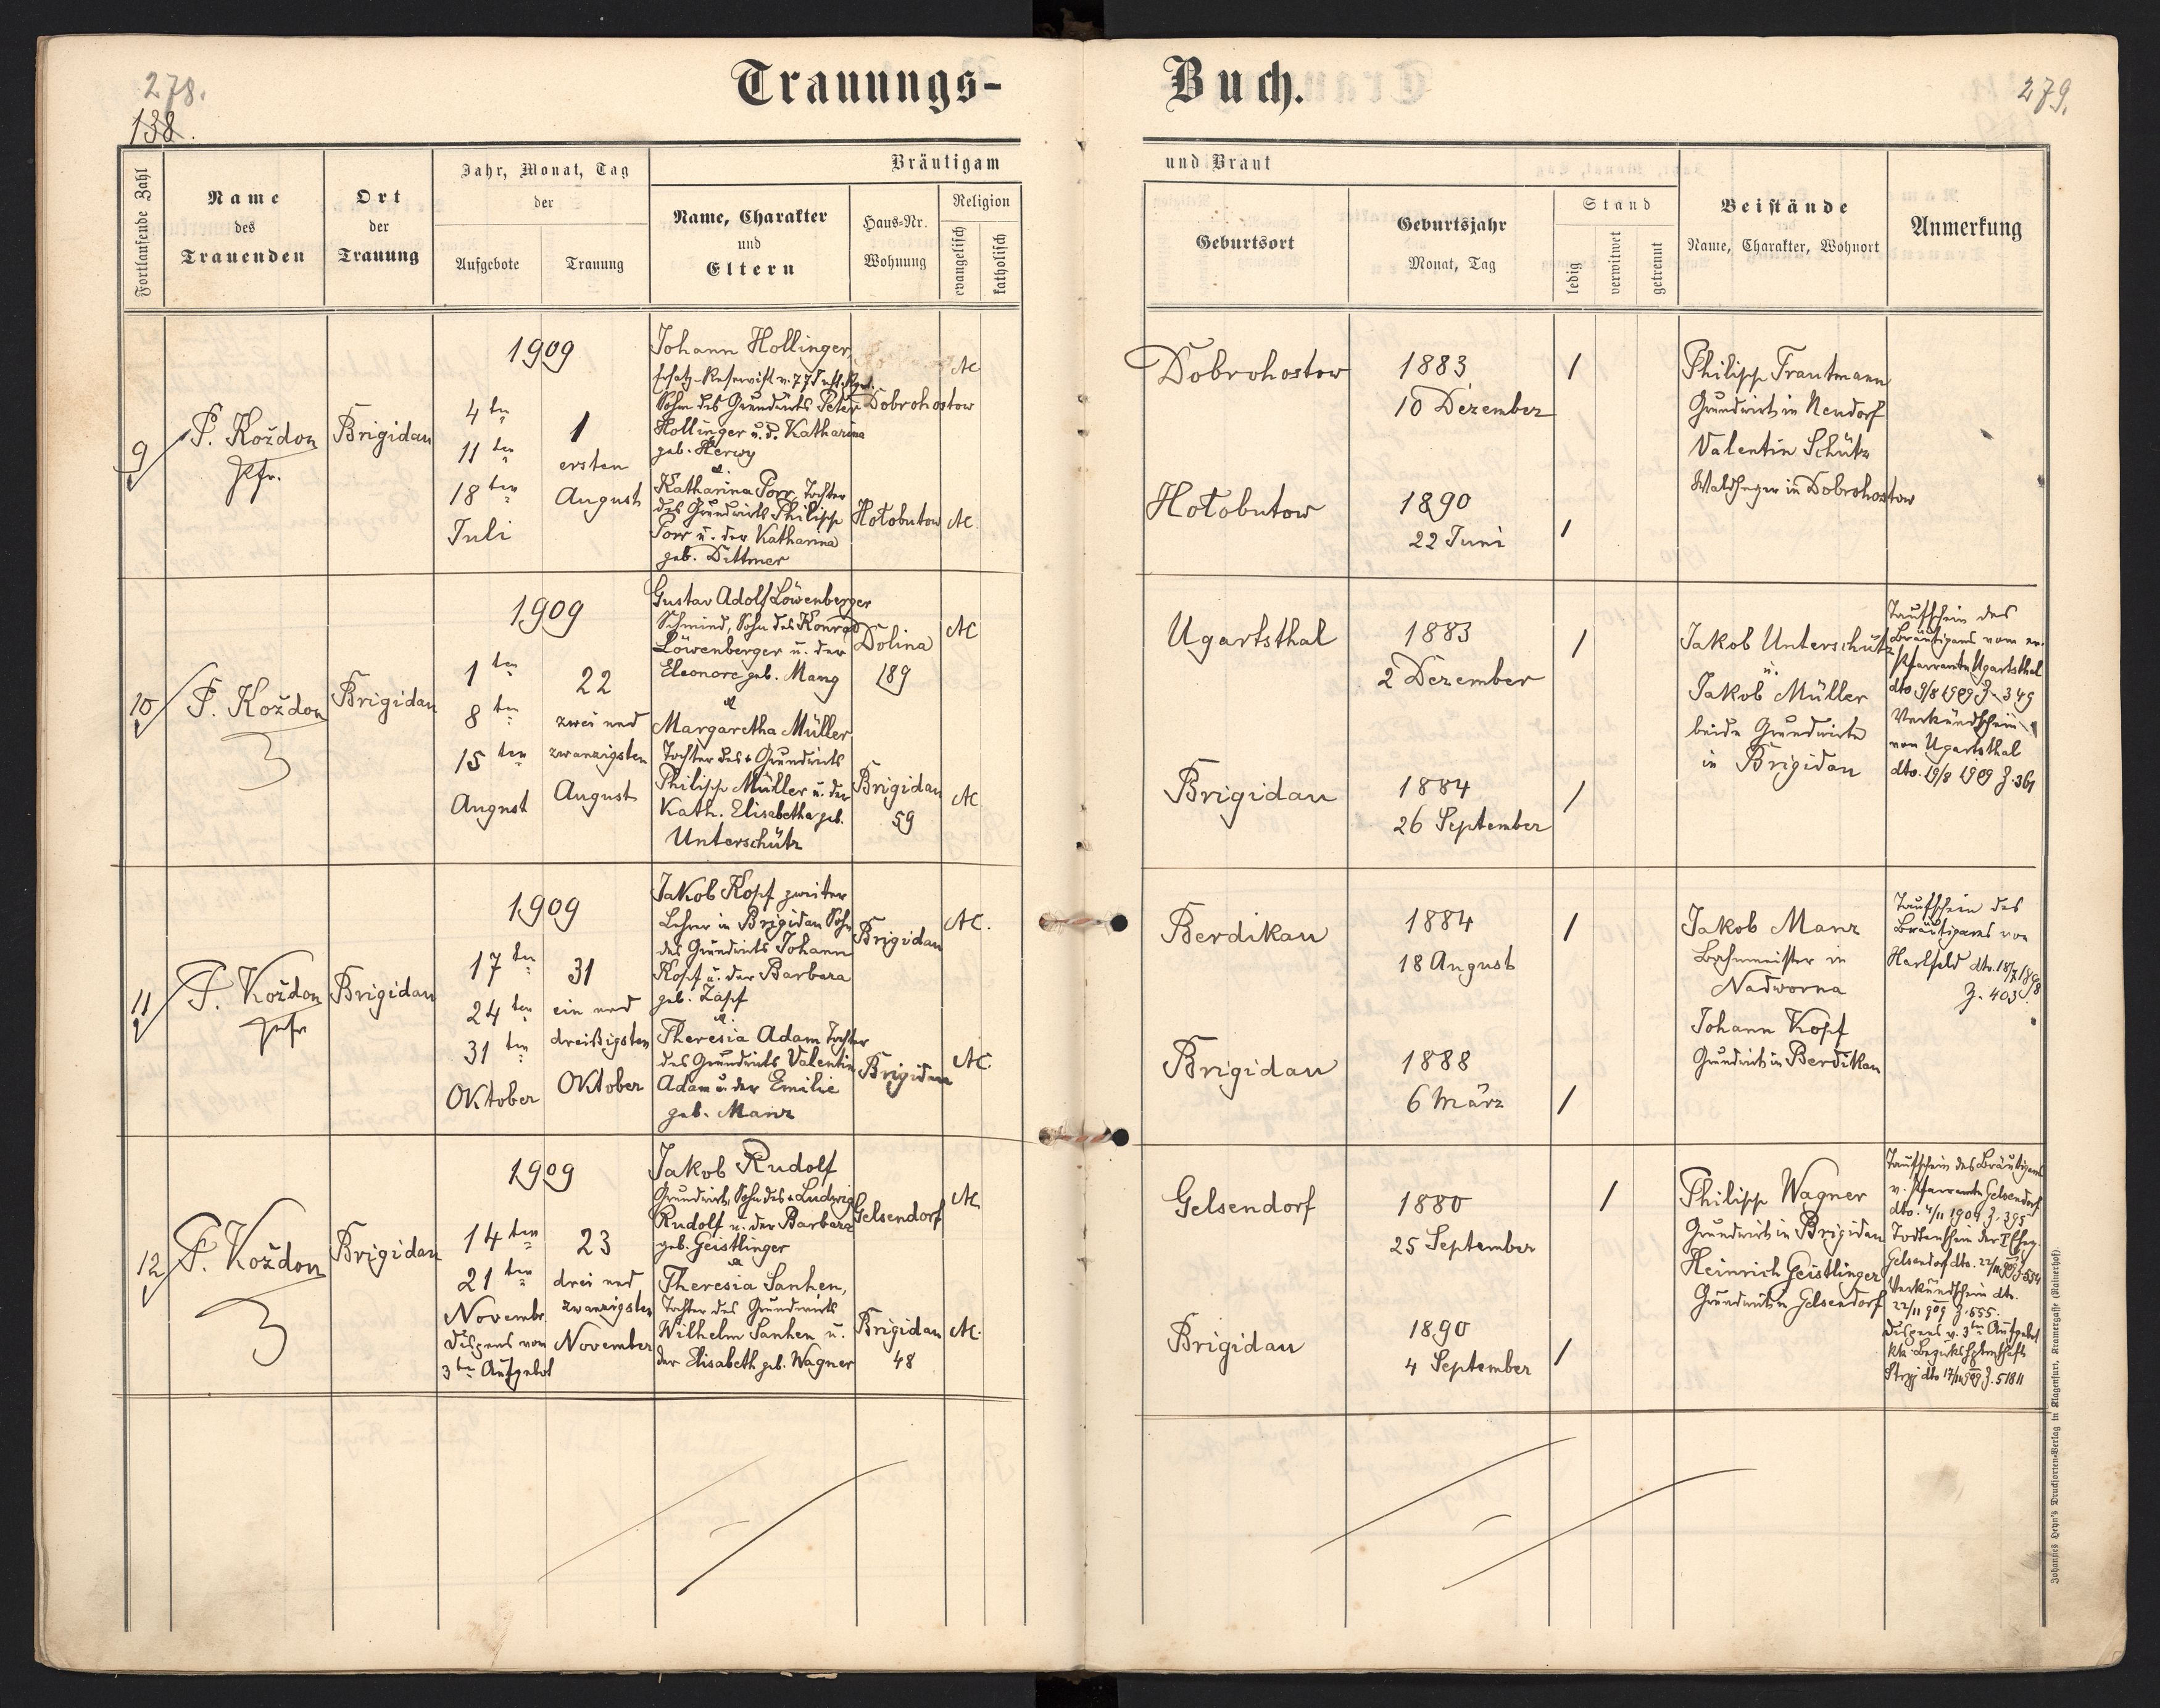 278.
138.
Trauungs-
Buch.
279.
Fortlaufende Zahl
Name
des
Trauenden
Ort
der
Trauung
Jahr, Monat, Tag
der
Aufgebote
Trauung
Bräutigam
Name, Charakter
und
Eltern
Haus-Nr.
Wohnung
Religion
evangelisch
katholisch
und Braut
Geburtsort
Geburtsjahr
Monat, Tag
Stand
ledig
verwitwet
getrennt
Beistände
Name, Charakter, Wohnort
Anmerkung
9
P. Koždon
Pfr.
Brigidau
1909
4 ten
11 ten
18 ten
Juli
1
ersten
August
Johann Hollinger,
Ersatz-Reservist v. 77 Inft. Rgmt.
Sohn des Grundwirts Peter
Hollinger u. d. Katharina
geb. Herwy
&
Katharina Porr, Tochter
des Grundwirts Philipp
Porr u. der Katharina
geb. Dittmer
Dobrohostow
Hołobutow
AC
AC.
Dobrohostow
1883
10 Dezember
/
Hołobutow
1890
22 Juni
/
Philipp Trautmann
Grundwirt in Neudorf
Valentin Schütz
Waldheger in Dobrohostow
10
P. Koždon
Brigidau
1909
1 ten
8 ten
15 ten
August
22
zwei und
zwanzigsten
August
Gustav Adolf Löwenberger
Schmied, Sohn des Konrad
Löwenberger u. der
Eleonore geb. Mang
&
Margaretha Müller
Tochter des + Grundwirts
Philipp Müller u. der
Kath. Elisabetha geb.
Unterschütz
Dolina
189
Brigidau
59
AC
AC.
Ugartsthal
1883
2 Dezember
/
Brigidau
1884
26 September
/
Jakob Unterschütz
u.
Jakob Müller
beide Grundwirte
in Brigidau
Taufschein des
Bräutigams vom ev.
Pfarramte Ugartsthal
dto 9/8 1909 Z. 349
Verkündschein
von Ugartsthal
dto. 19/8 1909 Z. 361
11
P. Koždon
Pfr
Brigidau
1909
17 ten
24 ten
31 ten
Oktober
31
ein und
dreißigsten
Oktober
Jakob Kopf zweiter
Lehrer in Brigidau Sohn
des Grundwirts Johann
Kopf u. der Barbara
geb. Zapf
&
Theresia Adam Tochter
des Grundwirts Valentin
Adam u. der Emilie
geb. Manz
Brigidau
Brigidau
AC.
AC.
Berdikau
1884
18 August
/
Brigidau
1888
6 März
/
Jakob Manz
Bahnmeister in
Nadworna
Johann Kopf
Grundwirt in Berdikau
Taufschein des
Bräutigams von
Hartfeld dto. 18/7 1898
Z. 403.
12
P. Koždon
Brigidau
1909
14 ten
21 ten
Novembr.
Dispens vom
3 ten Aufgebot
23
drei und
zwanzigsten
November
Jakob Rudolf
Grundwirt, Sohn des + Ludwig
Rudolf u. der Barbara
geb. Geistlinger
&
Theresia Sanhen,
Tochter des Grundwirts
Wilhelm Sanhen u.
der Elisabeth geb. Wagner
Gelsendorf
Brigidau
48
AC
AC.
Gelsendorf
1880
25 September
/
Brigidau
1890
4 September
/
Philipp Wagner
Grundwirt in Brigidau
Heinrich Geistlinger
Grundwirt in Gelsendorf
Taufschein des Bräutigams
v. Pfarramte Gelsendorf
dto. 4/11 1904 Z. 395
Todtenschein der I Eheg.
Gelsendorf dto. 22/11 909 Z. 554
Verkündschein dto.
22/11 909 Z. 555.
Dispens v. 3ten Aufgebot
kk Bezirkshptmschaft
Stryj dto 17/11 909 Z. 51811
Johannes Heyn's Drucksorten-Verlag in Klagenfurt, Kramergasse (Rainerhof).